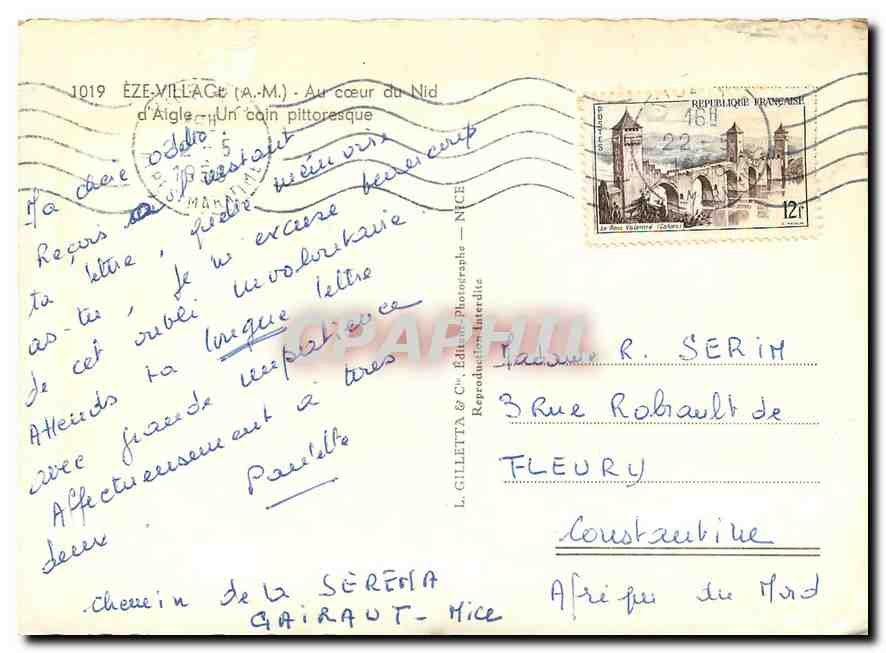 1019 ÈZE-VILLAGE (A.-M.) - Au cœur du Nid
d'Aigle - Un coin pittoresque
Ma chère Odile.
Reçois à l'instant
ta lettre, quelle mémoire
as-tu, Je m'excuse beaucoup
de cet oubli involontaire.
Attends ta longue lettre
avec grande impatience
Affectueusement à tous
deux.
Paulette
chemin de la SEREMA
GAIRAUT - Nice
L. GILLETTA & Cie, Éditeur-Photographe — NICE
Reproduction Interdite
POSTES
REPUBLIQUE FRANÇAISE
Le Pont Valentré (Cahors)
12F
16H
22
MARITIMES
CPAPHIL
Madame R. SERIM
3 Rue Rohault de
FLEURY
Constantine
Afrique du Nord